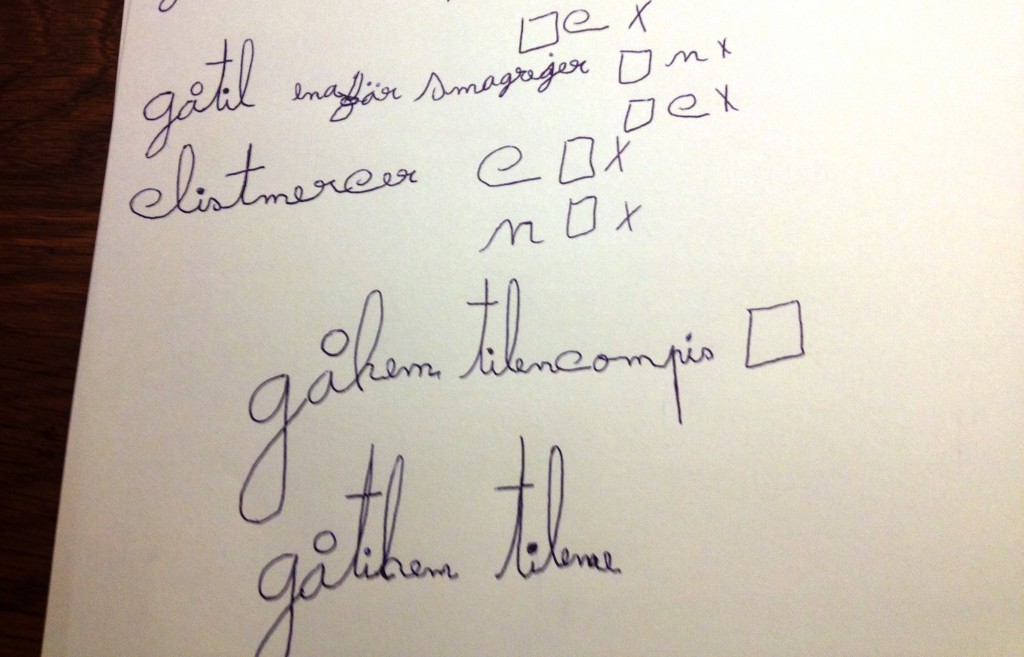 □ e x
gåtil enaffär smagrejer □ n x
□ e x
elistmercer e □ x
n □ x
gåhem tilencompis □
gåtihem tileme